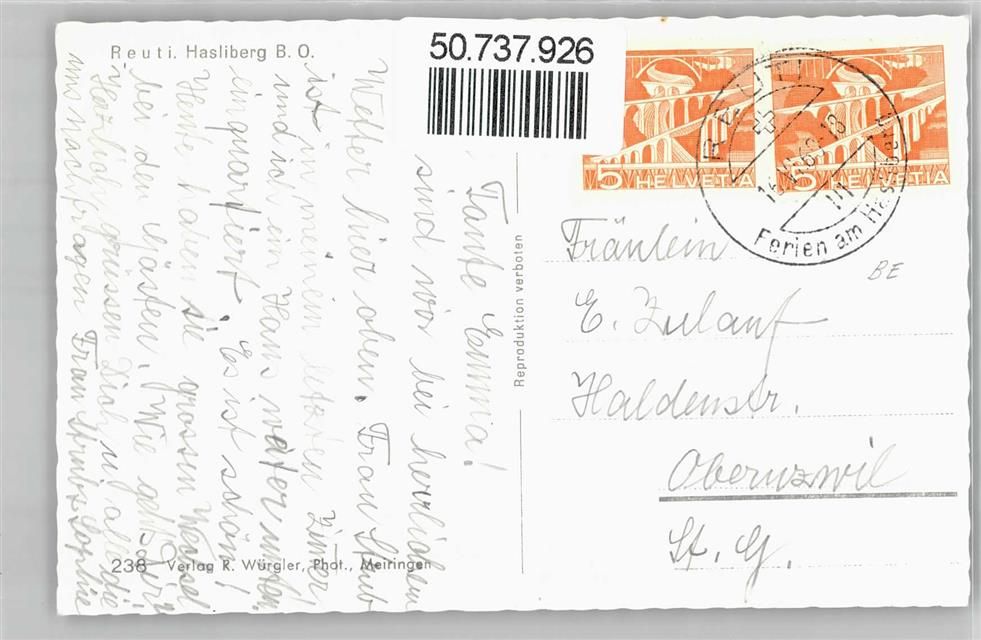 Reuti. Hasliberg B. O.
50.737.926
5 HELVETIA
5 HELVETIA
REUTI
Ferien am Hasliberg
BE
Tante Emma!
sind wir bei herrlichem
Wetter hier oben. Frau Staub
ist in meinem letzten Zimmer
und ich ein Haus weiter unten
einquartiert. Es ist schön!
Heute haben sie grossen Wechsel
bei den Gästen. Wie geht's Dir?
Herzlich grüssen Dich u. alle die
uns nachfragen Frau Sophie
Reproduktion verboten
Fräulein
E. Zulauf
Haldenstr.
Oberuzwil
St. G.
238 Verlag R. Würgler, Phot., Meiringen